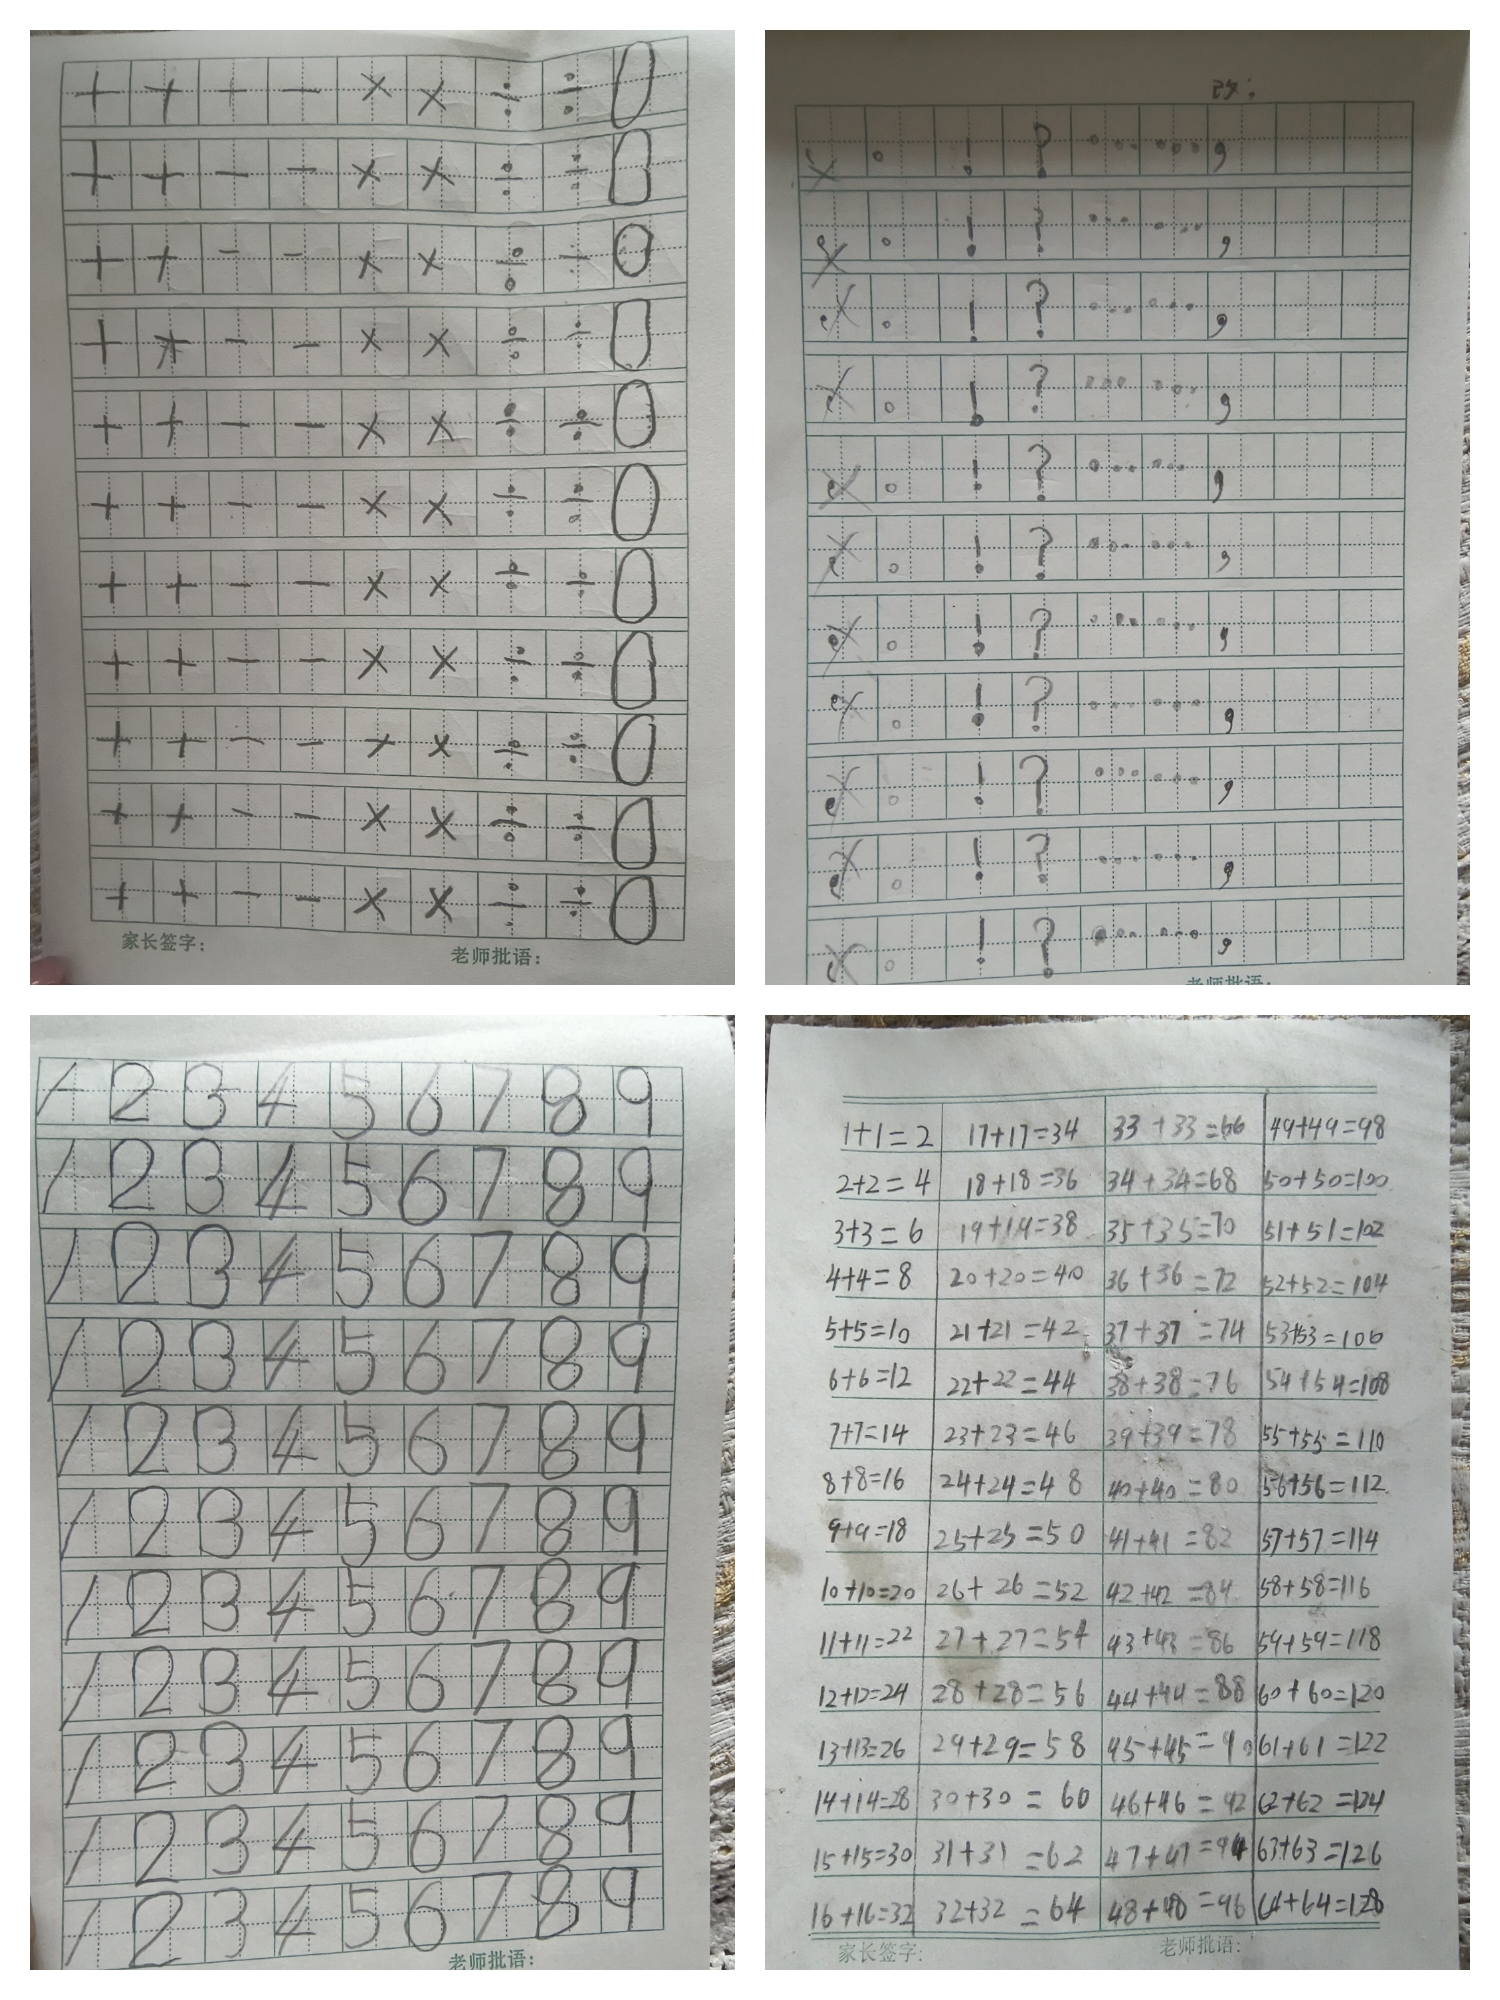 + + − − × × ÷ ÷ 0
+ + − − × × ÷ ÷ 0
+ + − − × × ÷ ÷ 0
+ + − − × × ÷ ÷ 0
+ + − − × × ÷ ÷ 0
+ + − − × × ÷ ÷ 0
+ + − − × × ÷ ÷ 0
+ + − − × × ÷ ÷ 0
+ + − − × × ÷ ÷ 0
+ + − − × × ÷ ÷ 0
+ + − − × × ÷ ÷ 0
家长签字: 老师批语:
。 ! ? …… ,
。 ! ? …… ,
。 ! ? …… ,
。 ! ? …… ,
。 ! ? …… ,
。 ! ? …… ,
。 ! ? …… ,
。 ! ? …… ,
。 ! ? …… ,
。 ! ? …… ,
。 ! ? …… ,
老师批语:
1 2 3 4 5 6 7 8 9
1 2 3 4 5 6 7 8 9
1 2 3 4 5 6 7 8 9
1 2 3 4 5 6 7 8 9
1 2 3 4 5 6 7 8 9
1 2 3 4 5 6 7 8 9
1 2 3 4 5 6 7 8 9
1 2 3 4 5 6 7 8 9
1 2 3 4 5 6 7 8 9
1 2 3 4 5 6 7 8 9
1 2 3 4 5 6 7 8 9
老师批语:
1+1=2 17+17=34 33+33=66 49+49=98
2+2=4 18+18=36 34+34=68 50+50=100
3+3=6 19+19=38 35+35=70 51+51=102
4+4=8 20+20=40 36+36=72 52+52=104
5+5=10 21+21=42 37+37=74 53+53=106
6+6=12 22+22=44 38+38=76 54+54=108
7+7=14 23+23=46 39+39=78 55+55=110
8+8=16 24+24=48 40+40=80 56+56=112
9+9=18 25+25=50 41+41=82 57+57=114
10+10=20 26+26=52 42+42=84 58+58=116
11+11=22 27+27=54 43+43=86 59+59=118
12+12=24 28+28=56 44+44=88 60+60=120
13+13=26 29+29=58 45+45=90 61+61=122
14+14=28 30+30=60 46+46=92 62+62=124
15+15=30 31+31=62 47+47=94 63+63=126
16+16=32 32+32=64 48+48=96 64+64=128
家长签字: 老师批语: